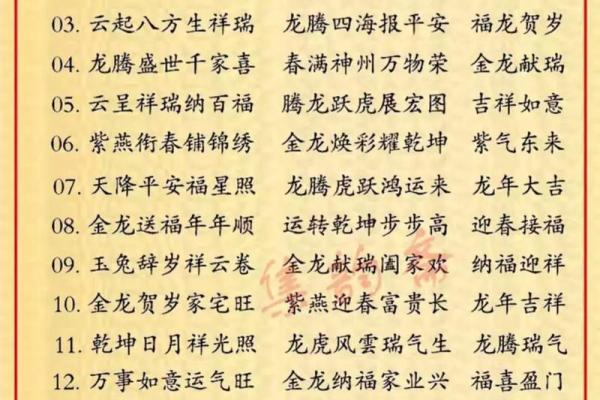 03. 云起八方生祥瑞 龙腾四海报平安 福龙贺岁
04. 龙腾盛世千家喜 春满神州万物荣 金龙献瑞
05. 云呈祥瑞纳百福 腾龙跃虎展宏图 吉祥如意
06. 紫燕衔春铺锦绣 金龙焕彩耀乾坤 紫气东来
07. 天降平安福星照 龙腾虎跃鸿运来 龙年大吉
08. 金龙送福年年顺 运转乾坤步步高 迎春接福
09. 玉兔辞岁祥云卷 金龙献瑞阖家欢 纳福迎祥
10. 金龙贺岁家宅旺 紫燕迎春富贵长 龙年吉祥
11. 乾坤日月祥光照 龙虎风雲瑞气生 龙腾瑞气
12. 万事如意运气旺 金龙纳福家业兴 福喜盈门
集韵斋